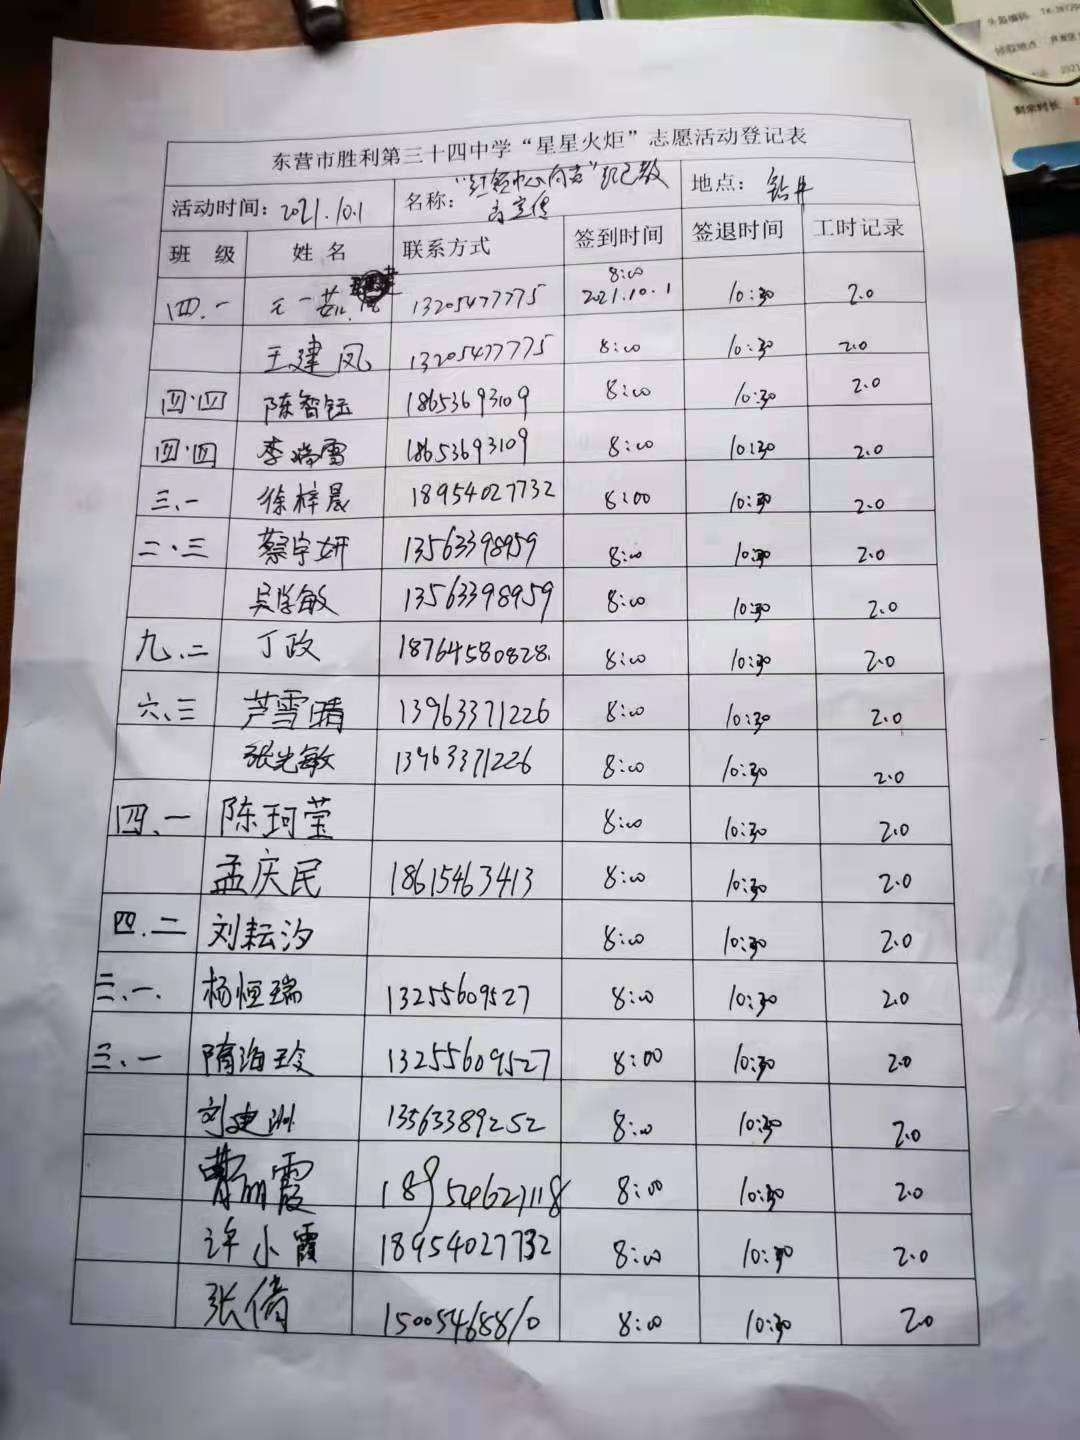 头盔编码:
领取地点:
剩余时长
东营市胜利第三十四中学“星星火炬”志愿活动登记表
活动时间: 2021.10.1 名称: 地点: 钻井
宣传
班 级 姓 名 联系方式 签到时间 签退时间 工时记录
四.一 13205477775 8:00 2021.10.1 10:30 2.0
王建凤 13205477775 8:00 10:30 2.0
四.四 陈智钰 18653693109 8:00 10:30 2.0
四.四 李 18653693109 8:00 10:30 2.0
三.一 徐梓晨 18954027732 8:00 10:30 2.0
二.三 蔡宇妍 13563398959 8:00 10:30 2.0
吴学敏 13563398959 8:00 10:30 2.0
九.二 丁政 18764580828 8:00 10:30 2.0
六.三 芦雪晴 13963371226 8:00 10:30 2.0
张光敏 13963371226 8:00 10:30 2.0
四.一 陈珂莹 8:00 10:30 2.0
孟庆民 18615463413 8:00 10:30 2.0
四.二 刘耘汐 8:00 10:30 2.0
三.一. 杨恒瑞 13255609527 8:00 10:30 2.0
三.一 隋海玲 13255609527 8:00 10:30 2.0
刘建洲 13563389252 8:00 10:30 2.0
曹丽霞 18954627118 8:00 10:30 2.0
许小霞 18954027732 8:00 10:30 2.0
张倩 15005468810 8:00 10:30 2.0